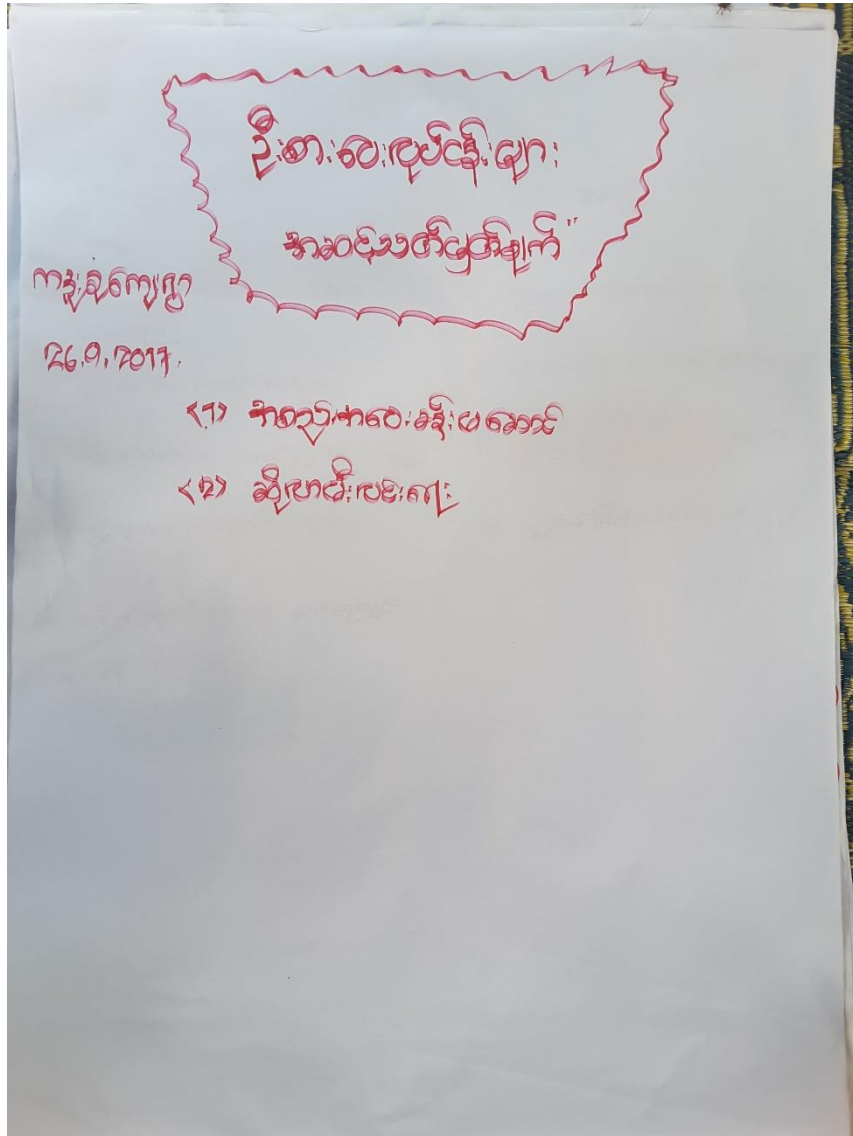 ဦးစားပေးလုပ်ငန်းများ
အဆင့်သတ်မှတ်ချက်"
ကျေးရွာ
26.9.2017.
<၁> အစည်းအဝေးခန်းမဆောင်
<၂> ဆိုလာမီးလင်းရေး